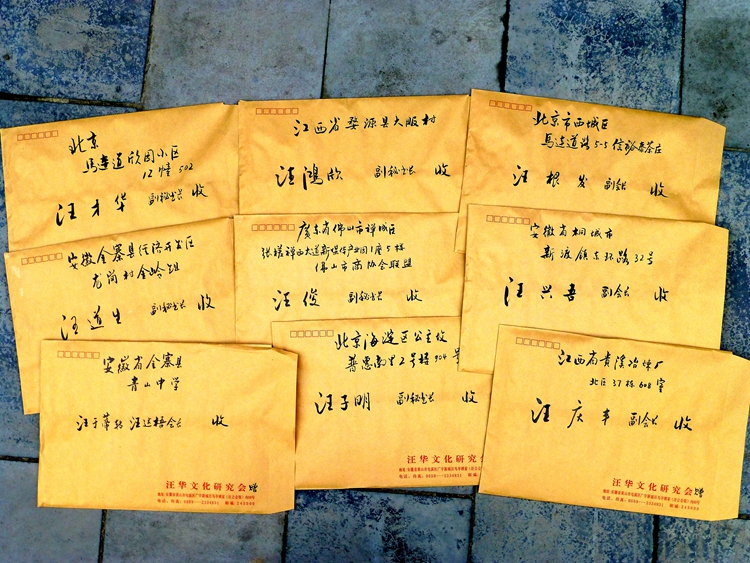 北京
馬連道欣园小区
12幢 502
汪才华 副秘书长 收
江西省婺源县大畈村
汪鴻欣 副秘书长 收
北京市西城区
馬连道路5-5
汪根发 副会长 收
安徽金寨县经济开发区
龙岗村金岭组
汪道生 副秘书长 收
廣东省佛山市禅城区
佛山市商协会联盟
汪俊 副秘书长 收
安徽省桐城市
新渡镇东环路32号
汪兴吾 副会长 收
安徽省金寨县
青山中学
汪于莘转 汪达梧会长 收
汪华文化研究会 赠
北京海淀区公主坟
普惠南里2号楼904号
汪子明 副秘书长 收
汪华文化研究会
江西省贵溪冶炼厂
北区37栋608室
汪庆丰 副会长 收
汪华文化研究会 赠